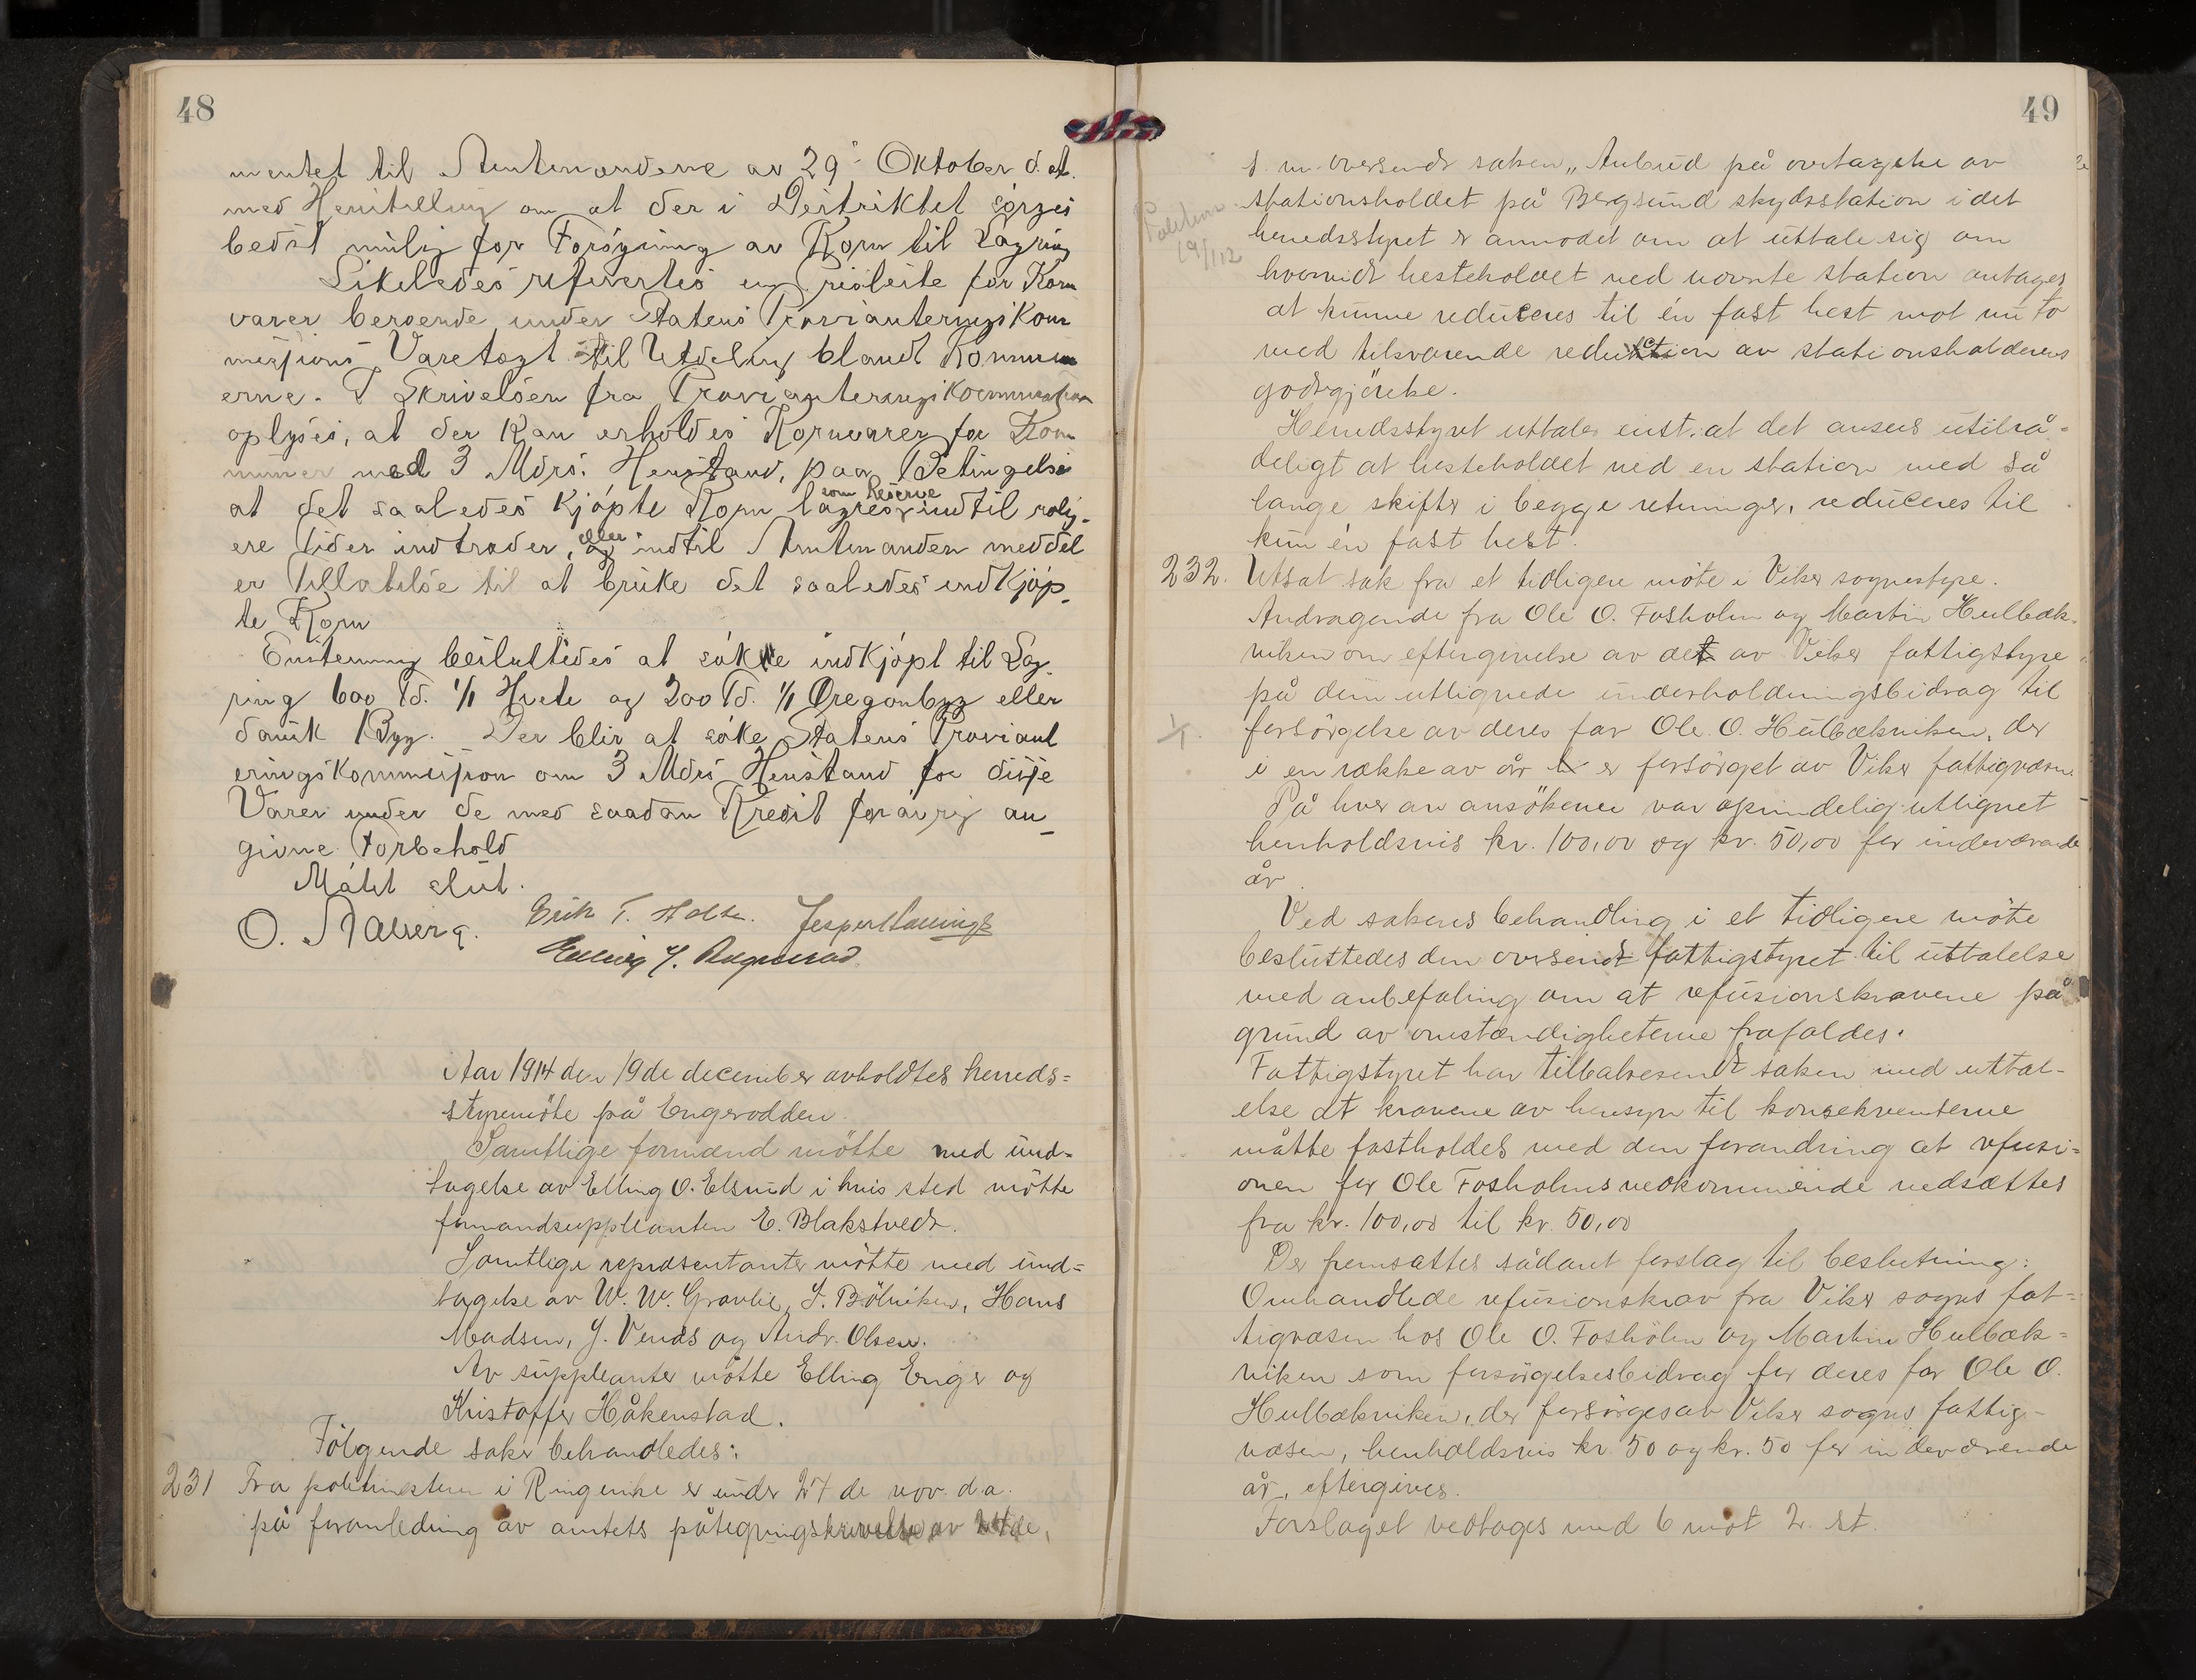 48
mentet til Amtmændene av 29 Oktober d.A.
med Henstilling om at der i Distriktet sørges
bedst mulig for Forøgning av Korn til Lagring
Likeledes refertes en Prisliste for Korn
varer beroende under Statens Provianteringskom
missions Varetægt til Utdeling blandt Kommun
erne. I Skrivelsen fra Provianteringskommission
oplyses, at der kan erholdes Kornvarer for Kom
muner med 3 Mdrs. Henstand, paa Betingelse
at det saaledes kjøpte Korn lagres som Reserve indtil rolig-
ere Tider indtræder, eller indtil Amtmanden meddel
er Tillatelse til at bruke det saaledes indkjøp-
te Korn
Enstemmig besluttedes at søke indkjøpt til Lag-
ring 600 Td. 1/1 Hvete og 200 Td. 1/1 Oregonbyg eller
dansk Byg. Der blir at søke Statens Proviant
eringskommission om 3 Mdrs Henstand for disse
Varer under de med saadan Kredit forøvrig an-
givne Forbehold
Møtet slut.
O. Erik T. Holte.
Aar 1914 den 19de december avholdtes herreds=
styremöte på Engerodden.
Samtlige formænd mötte med und=
tagelse av Elling O. Elsrud i hvis sted mötte
formandsuppleanten E. Blakstvedt.
Samtlige repræsentanter mötte med und=
tagelse av W. W. Gravlie, J. Bölviken, Hans
Madsen, J. Venås og Andr. Olsen.
Av suppleanter mötte Elling Enger og
Kristoffer Håkenstad.
Fölgende saker behandledes:
231 Fra politimesteren i Ringerike er under 27de nov. d.a.
på foranledning av amtets påtegningskrivelse av 24de
49
s. m. oversendt saken "Anbud på overtagelse av
stationsholdet på Bergsund skydsstation i det
herredsstyret er anmodet om at uttale sig om
hvorvidt hesteholdet ved nævnte station antages
at kunne reduceres til én fast hest mot nu to
med tilsvarende reduktion av stationsholderens
godtgjörelse.
Herredsstyret uttaler enst. at det ansees utilrå=
deligt at hesteholdet ved en station med så
lange skifter i begge retninger, reduceres til
kun én fast hest.
232. Utsat sak fra et tidligere möte i Viker sognestyre.
Andragende fra Ole O. Fosholm og Martin Hulbæk-
viken om eftergivelse av det av Viker fattigstyre
på dem utlignede underholdningsbidrag til
forsörgelse av deres far Ole O. Hulbækviken, der
i en række av år er forsörget av Viker fattigvæsen
På hver av ansökerne var oprindelig utlignet
henholdsvis kr. 100,00 og kr. 50,00 for indeværende
år.
Ved sakens behandling i et tidligere möte
besluttedes den oversendt fattigstyret til uttalelse
med anbefaling om at refusionskravene på
grund av omstændigheterne frafaldes.
Fattigstyret har tilbakesendt saken med uttal-
else at kravene av hensyn til konsekventerne
måtte fastholdes med den forandring at refusi=
onen for Ole Fosholms vedkommende nedsættes
fra kr. 100,00 til kr. 50,00
Der fremsattes sådant forslag til beslutning:
Omhandlede refusionskrav fra Viker sogns fat=
tigvæsen hos Ole O. Fosholm og Martin Hulbæk=
viken som forsörgelsesbidrag for deres far Ole O.
Hulbækviken, der forsörges av Viker sogns fattig-
væsen, henholdsvis kr. 50 og kr. 50 for indeværende
år, eftergives.
Forslaget vedtages med 6 mot 2 st.